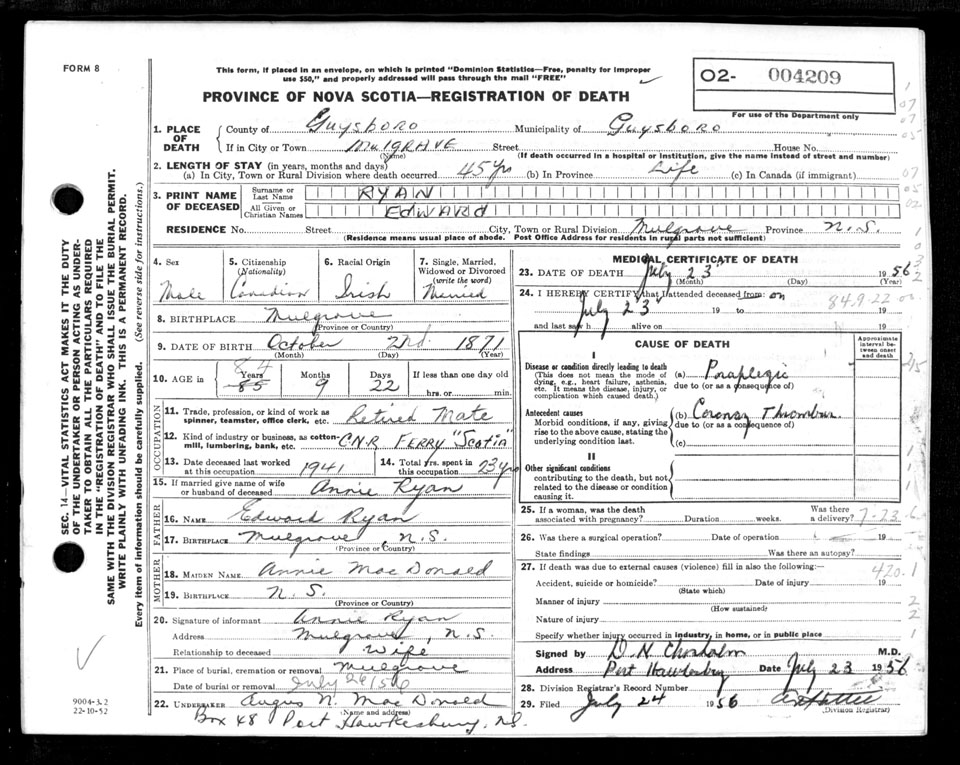 FORM 8
This form, if placed in an envelope, on which is printed "Dominion Statistics—Free, penalty for improper
use $50," and properly addressed will pass through the mail "FREE"
O2- 004209
For use of the Department only
PROVINCE OF NOVA SCOTIA—REGISTRATION OF DEATH
1. PLACE OF DEATH
County of Guysboro Municipality of Guysboro
If in City or Town MulGRAVE Street House No.
(Name) (If death occurred in a hospital or institution, give the name instead of street and number)
2. LENGTH OF STAY (in years, months and days)
(a) In City, Town or Rural Division where death occurred 45 yrs (b) In Province Life (c) In Canada (if immigrant)
3. PRINT NAME OF DECEASED
Surname or Last Name RYAN
All Given or Christian Names EDWARD
RESIDENCE No. Street City, Town or Rural Division Mulgrave Province N.S.
(Residence means usual place of abode. Post Office Address for residents in rural parts not sufficient)
4. Sex Male
5. Citizenship (Nationality) Canadian
6. Racial Origin Irish
7. Single, Married, Widowed or Divorced (write the word) Married
8. BIRTHPLACE Mulgrave
(Province or Country)
9. DATE OF BIRTH October 2nd. 1871
(Month) (Day) (Year)
10. AGE in Years Months Days If less than one day old
84 85 9 22 hrs. or min.
OCCUPATION
11. Trade, profession, or kind of work as spinner, teamster, office clerk, etc. Retired Mate
12. Kind of industry or business, as cotton-mill, lumbering, bank, etc. C.N.R FERRY "SCOTIA"
13. Date deceased last worked at this occupation 1941
14. Total yrs. spent in this occupation 23 yrs
15. If married give name of wife or husband of deceased Annie Ryan
FATHER
16. NAME Edward Ryan
17. BIRTHPLACE Mulgrave, N.S.
(Province or Country)
MOTHER
18. MAIDEN NAME Annie MacDonald
19. BIRTHPLACE N.S.
(Province or Country)
20. Signature of informant Annie Ryan
Address Mulgrave, N.S.
Relationship to deceased Wife
21. Place of burial, cremation or removal Mulgrave
Date of burial or removal July 26/56
22. UNDERTAKER Angus N. MacDonald
(Name and address)
Box 48 Port Hawkesbury, N.S.
MEDICAL CERTIFICATE OF DEATH
23. DATE OF DEATH July 23 1956
(Month) (Day) (Year)
24. I HEREBY CERTIFY that I attended deceased from: on
July 23 19 to 19
and last saw h alive on 19
84.9.22
CAUSE OF DEATH
Approximate interval between onset and death
I
Disease or condition directly leading to death
(This does not mean the mode of dying, e.g., heart failure, asthenia, etc. It means the disease, injury, or complication which caused death.)
(a) Paraplegic
due to (or as a consequence of)
Antecedent causes
Morbid conditions, if any, giving rise to the above cause, stating the underlying condition last.
(b) Coronary
due to (or as a consequence of)
(c)
II
Other significant conditions
contributing to the death, but not related to the disease or condition causing it.
25. If a woman, was the death associated with pregnancy? Duration weeks. Was there a delivery?
7-23-6
26. Was there a surgical operation? Date of operation 19
State findings Was there an autopsy?
27. If death was due to external causes (violence) fill in also the following:—
420.1
Accident, suicide or homicide? Date of injury 19
(State which)
Manner of injury
(How sustained)
Nature of injury
Specify whether injury occurred in industry, in home, or in public place
Signed by D. N. Chisholm M.D.
Address Port Hawkesbury Date July 23 1956
28. Division Registrar's Record Number
29. Filed July 24 1956
(Division Registrar)
SEC. 14—VITAL STATISTICS ACT MAKES IT THE DUTY
OF THE UNDERTAKER OR PERSON ACTING AS UNDER-
TAKER TO OBTAIN ALL THE PARTICULARS REQUIRED
IN THE "REGISTRATION OF DEATH" AND TO FILE THE
SAME WITH THE DIVISION REGISTRAR WHO SHALL ISSUE THE BURIAL PERMIT.
WRITE PLAINLY WITH UNFADING INK. THIS IS A PERMANENT RECORD.
Every item of information should be carefully supplied. (See reverse side for instructions.)
9004-3.2
22-10-52